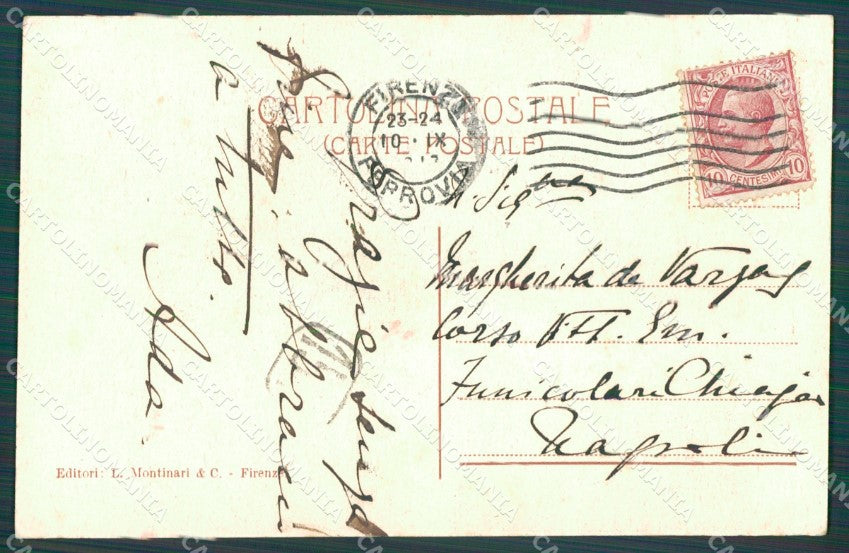 CARTOLINA POSTALE
(CARTE POSTALE)
FIRENZE
23-24
10 · IX
FERROVIA
POSTE ITALIANE
10 CENTESIMI 10
Margherita de Vargas
Corso Vitt. Em.
Funicolari Chiaja
Napoli
Grazie
abbracci
a tutti.
Ada.
Editori: L. Montinari & C. - Firenze
CARTOLINOMANIA